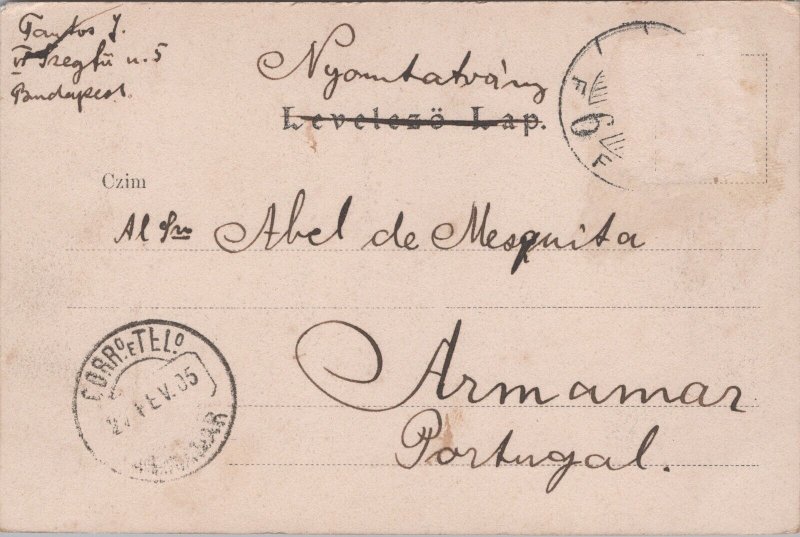 Tantos J.
VI Szegfü u. 5
Budapest.
Nyomtatvány
Levelező Lap.
F 6 F
Czim
Al Sro Abel de Mesquita
Armamar
Portugal.
CORRO E TELO
FEV.05
ARMAMAR